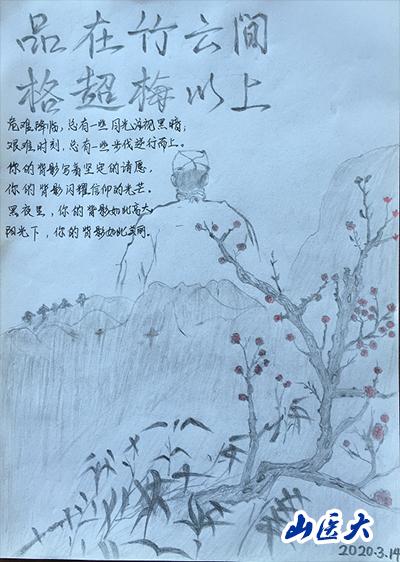 品在竹云间
格超梅以上
危难降临，总有一些目光注视黑暗；
艰难时刻，总有一些步伐逆行而上。
你的背影写着坚定的请愿，
你的背影闪耀信仰的光芒。
黑夜里，你的背影如此高大
阳光下，你的背影如此美丽。
山医大
2020.3.14